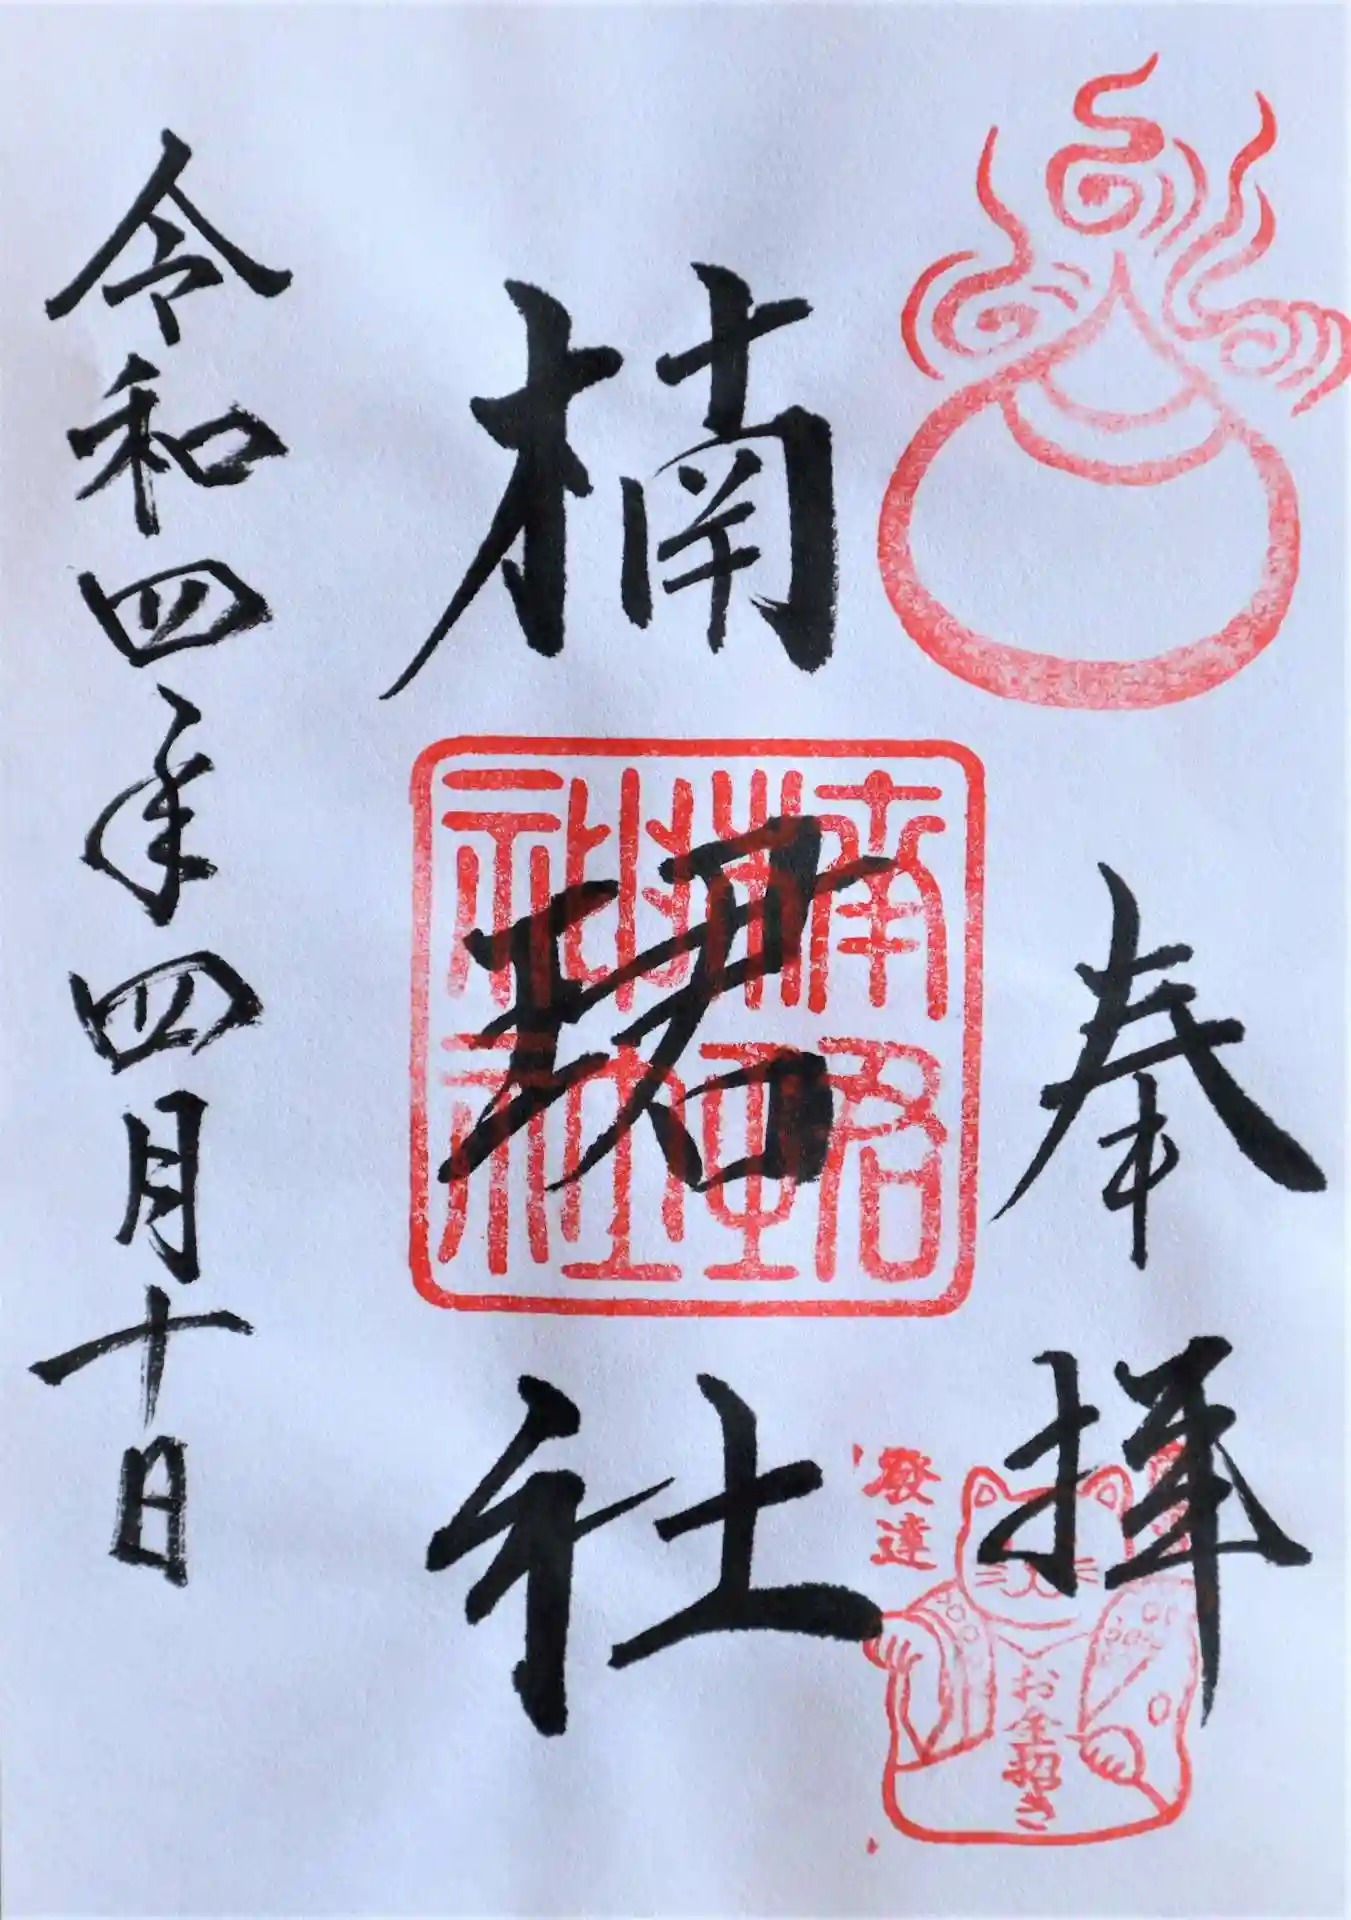 奉拝
楠珺社
令和四年四月十日
發達
お金招き